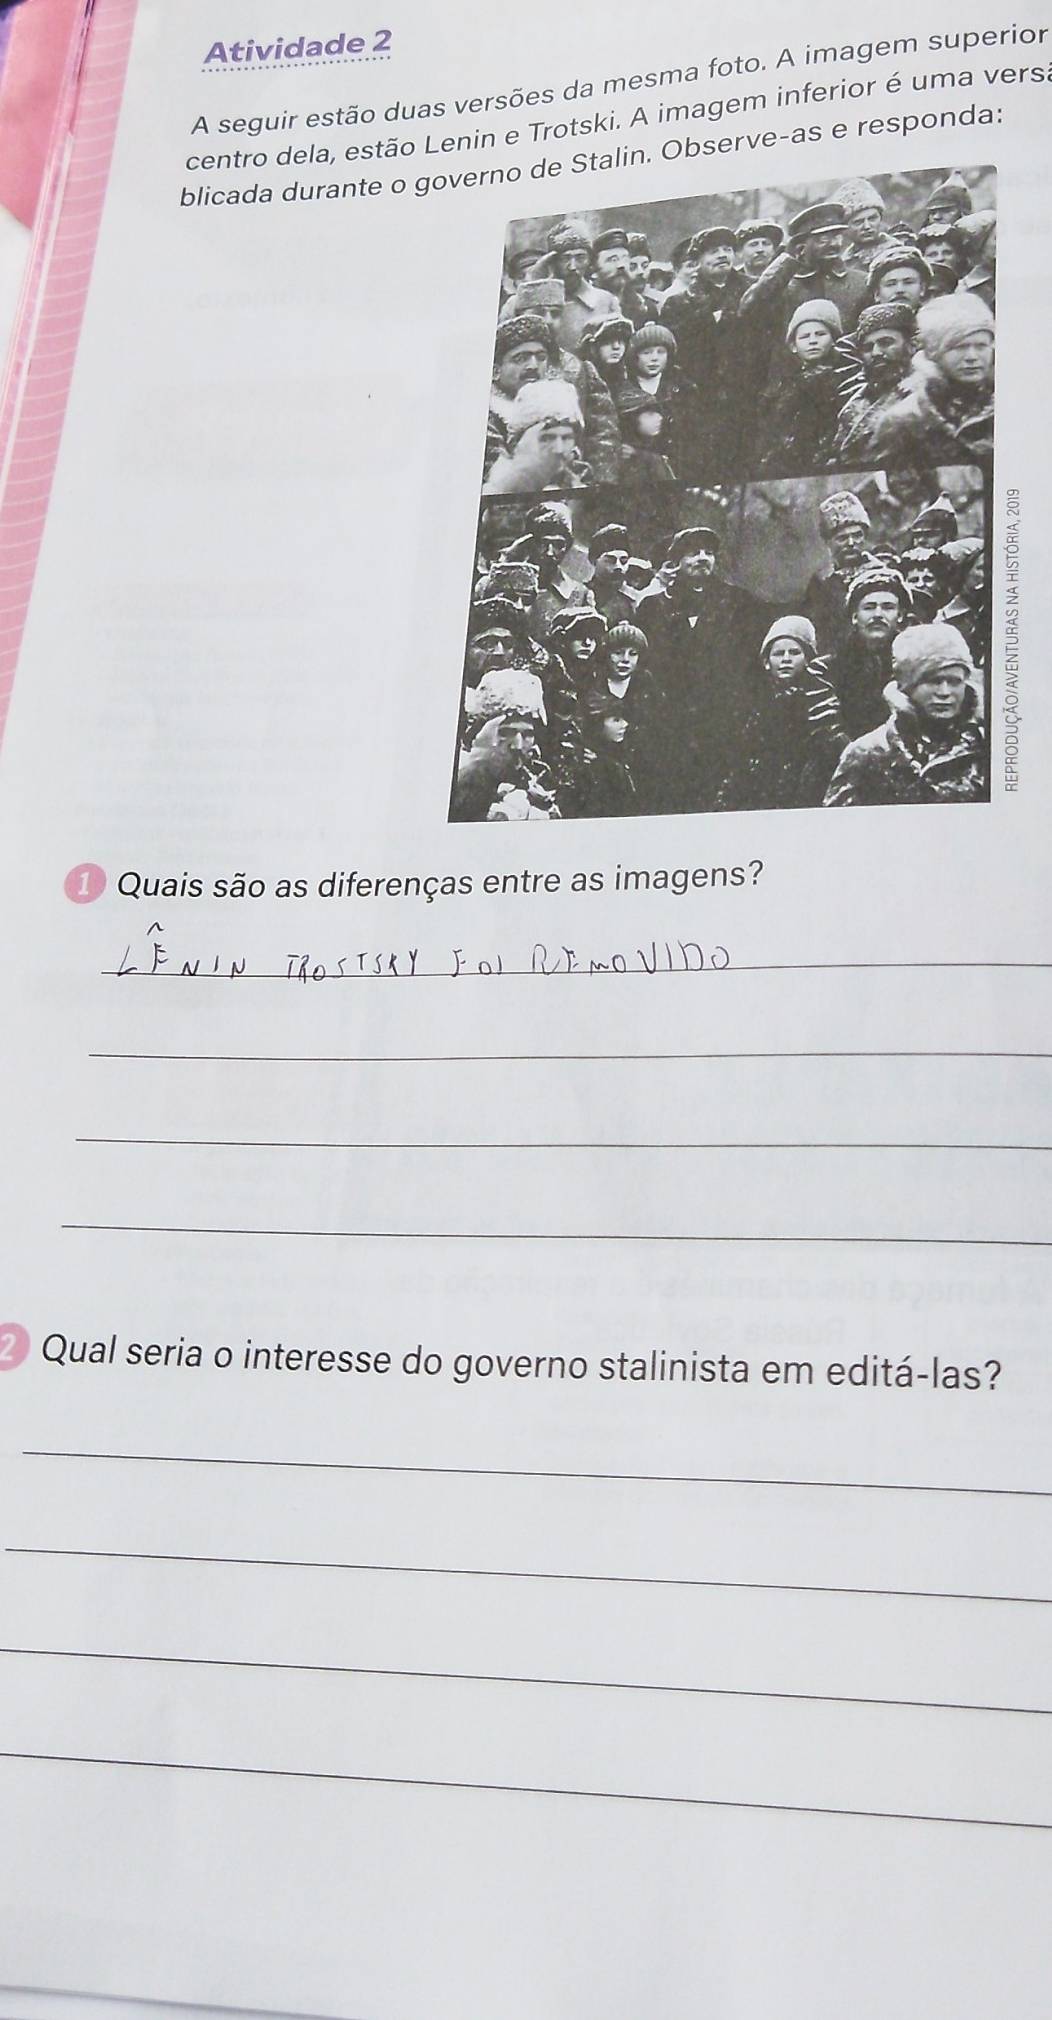 Atividade 2
A seguir estão duas versões da mesma foto. A imagem superior
centro dela, estão Lenin e Trotski. A imagem inferior é uma versã
blicada durante o governo de Stalin. Observe-as e responda:
REPRODUÇÃO/AVENTURAS NA HISTÓRIA, 2019
1 Quais são as diferenças entre as imagens?
LÊNIN TROSTSKY FOI REMOVIDO
2 Qual seria o interesse do governo stalinista em editá-las?